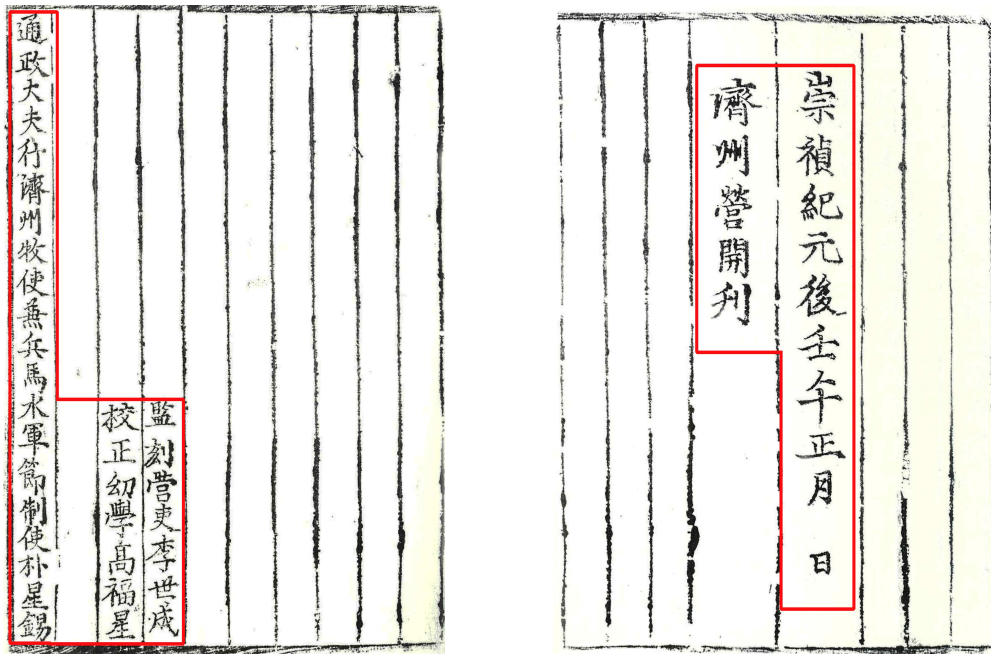 崇禎紀元後壬午正月 日
濟州營開刋
監刻營吏李世成
校正幼學高福星
通政大夫行濟州牧使兼兵馬水軍節制使朴星錫